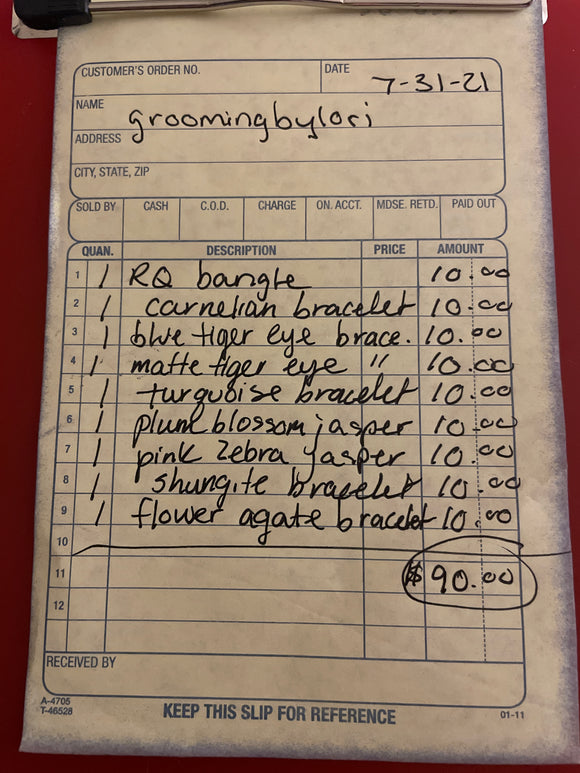 CUSTOMER'S ORDER NO. DATE 7-31-21
NAME groomingbylori
ADDRESS
CITY, STATE, ZIP
SOLD BY CASH C.O.D. CHARGE ON. ACCT. MDSE. RETD. PAID OUT
QUAN. DESCRIPTION PRICE AMOUNT
1 1 RQ bangle 10.00
2 1 carnelian bracelet 10.00
3 1 blue tiger eye brace. 10.00
4 1 matte tiger eye " 10.00
5 1 turquoise bracelet 10.00
6 1 plum blossom jasper 10.00
7 1 pink zebra jasper 10.00
8 1 shungite bracelet 10.00
9 1 flower agate bracelet 10.00
10
11 $90.00
12
RECEIVED BY
A-4705
T-46528
KEEP THIS SLIP FOR REFERENCE 01-11